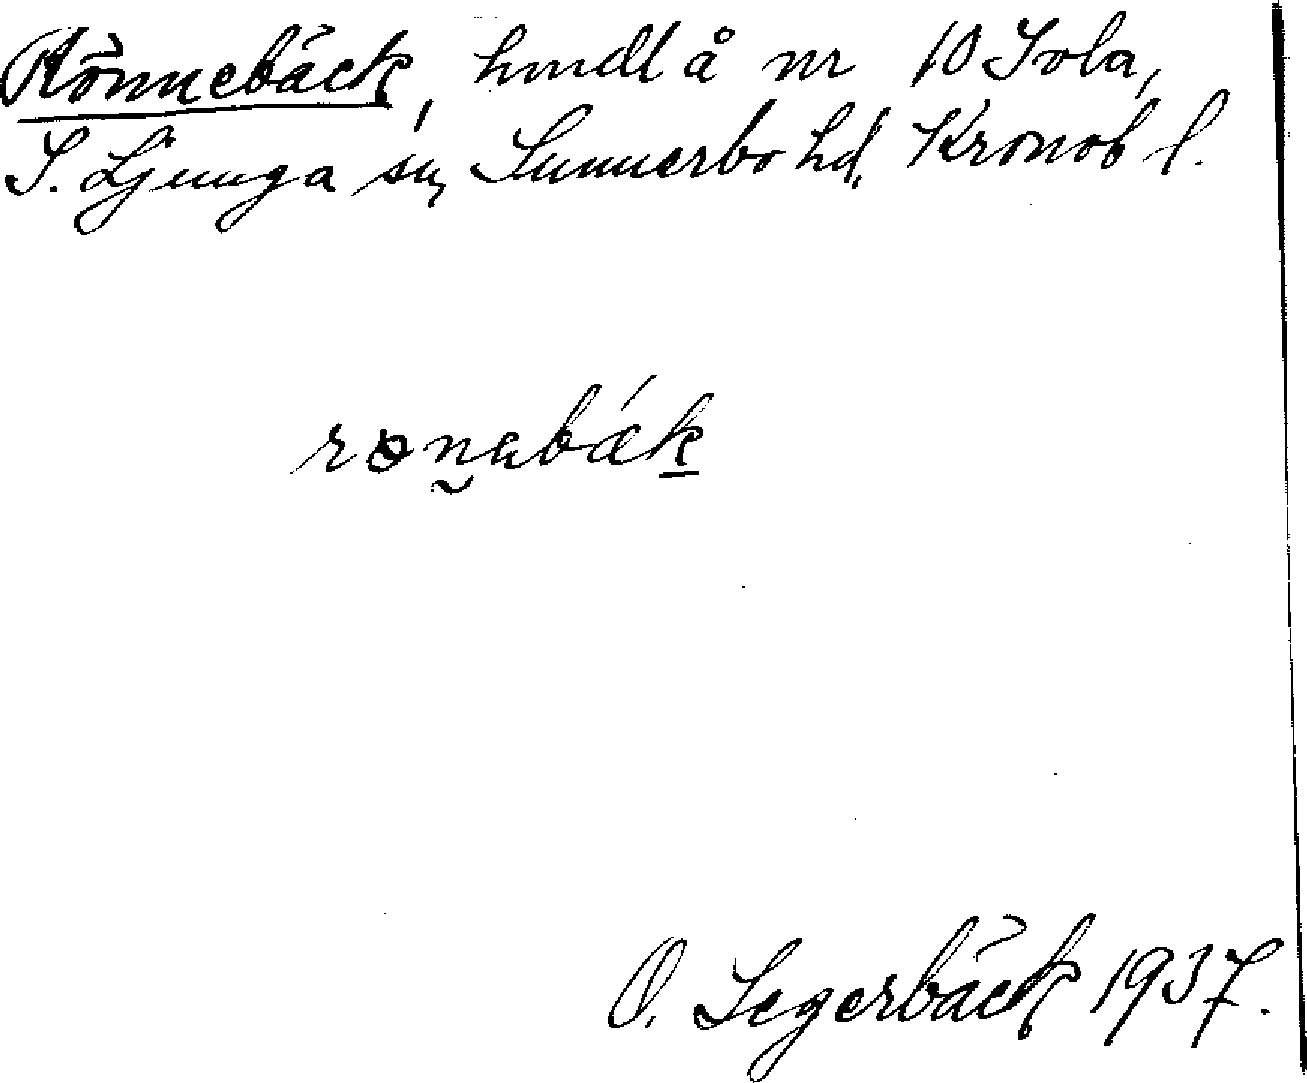 Rönnebäck, hmdl å nr 10 Tola,
S. Ljunga sn, Sunnerbo hd, Kronob l.
rɵnabǽk
O. Segerbäck 1937.